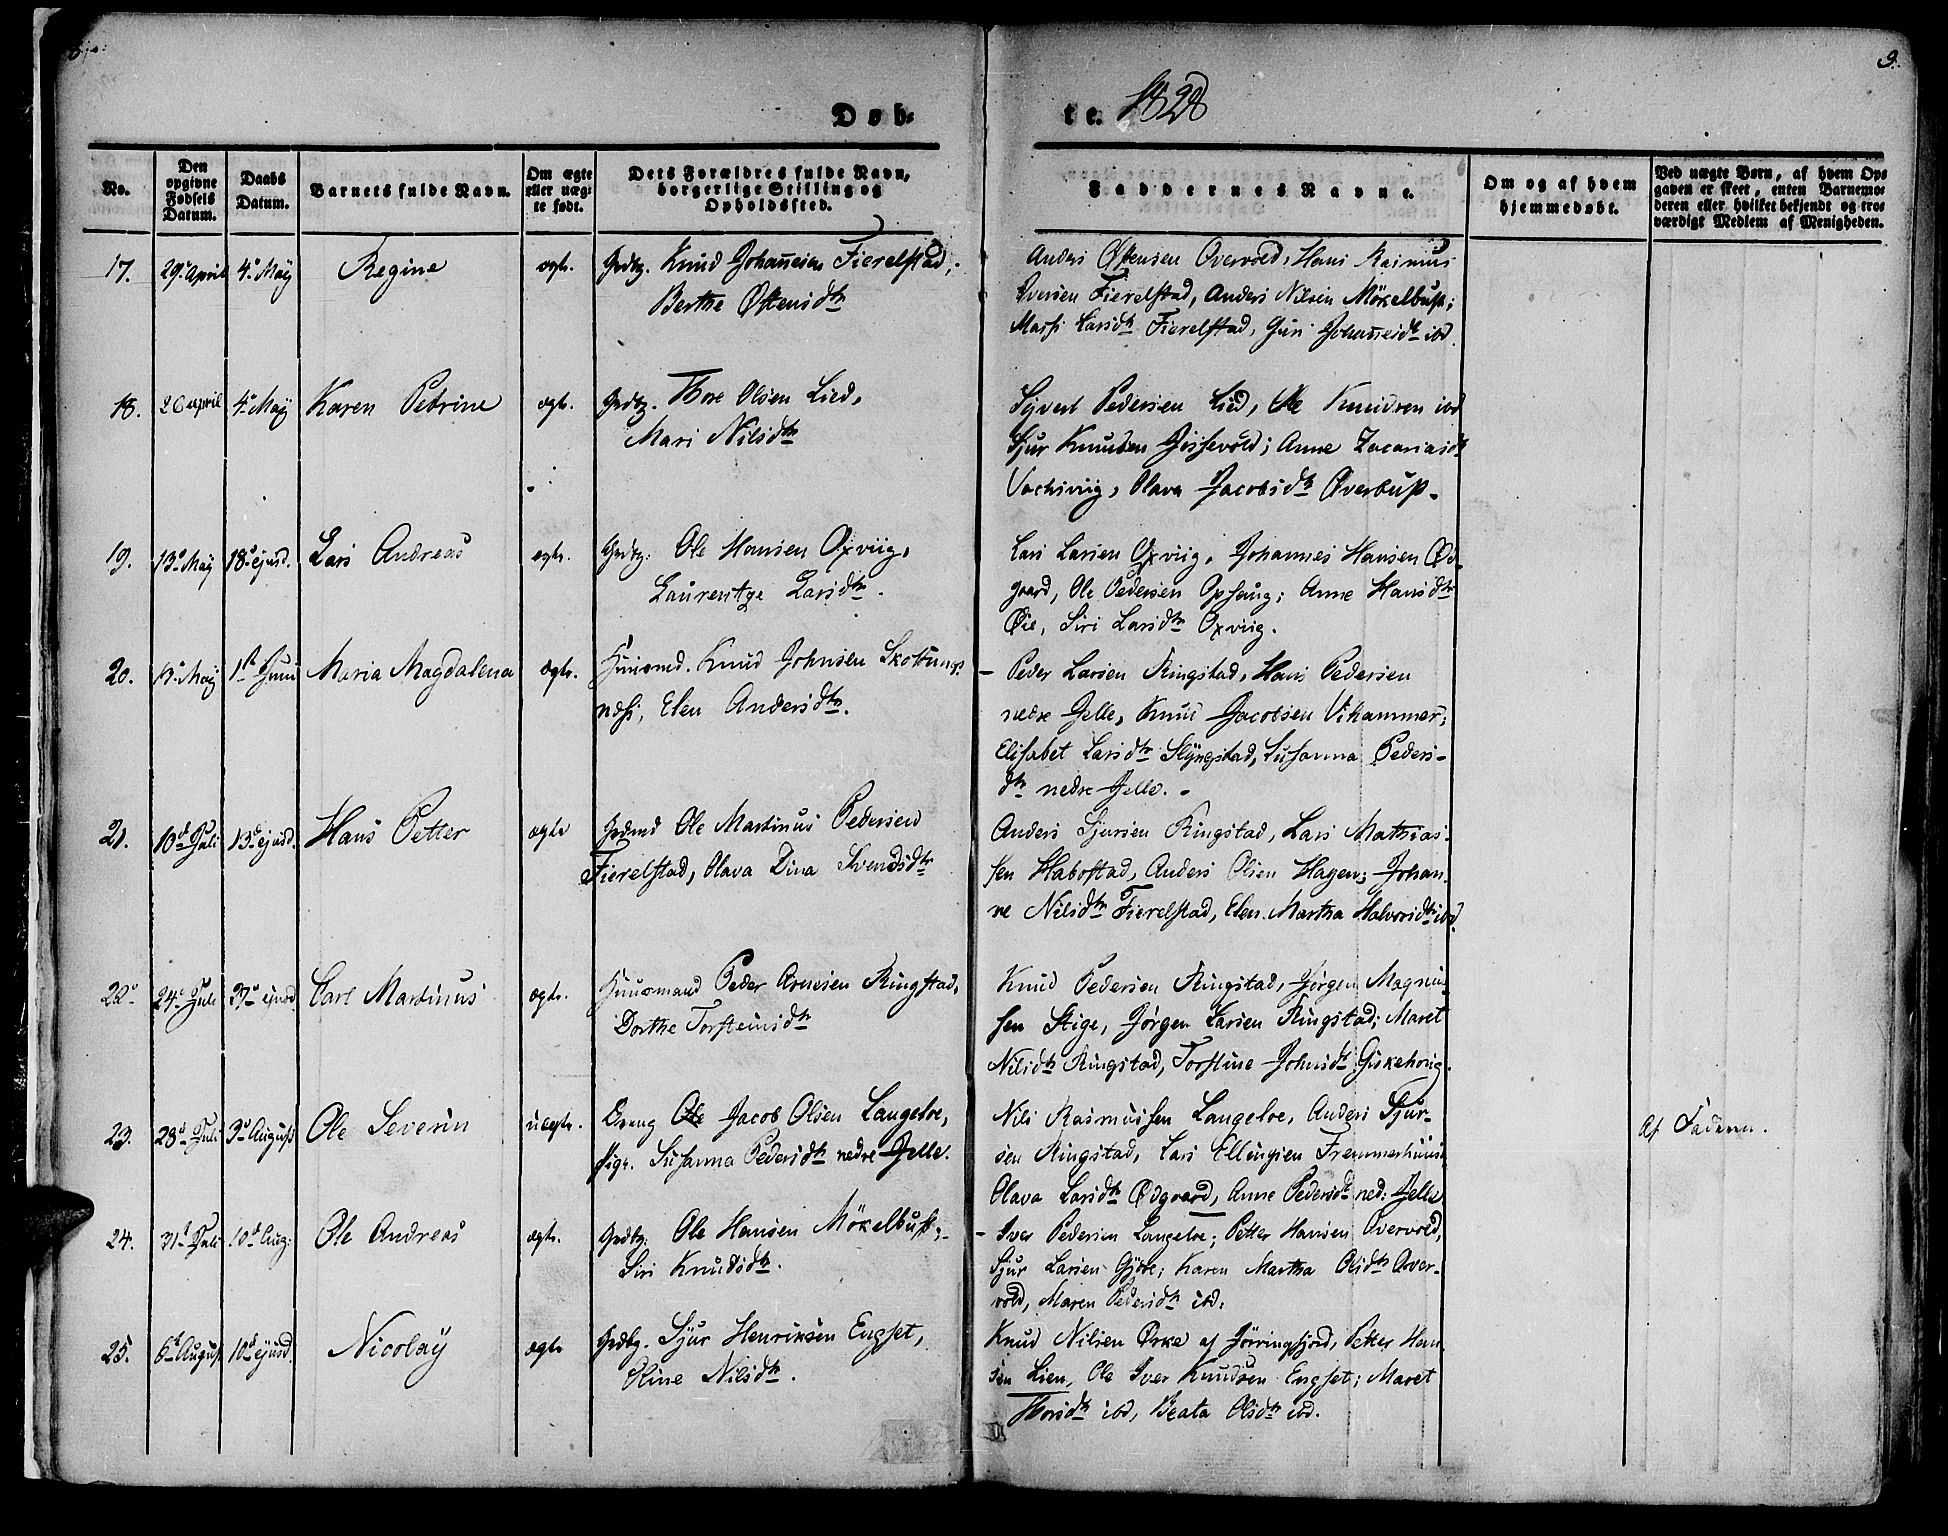 9.
Døb-
te. 1828
No.
Den opgivne Fødsels Datum.
Daabs Datum.
Barnets fulde Navn.
Om ægte eller uægte født.
Dets Forældres fulde Navn, borgerlige Stilling og Opholdssted.
Faddernes Navne.
Om og af hvem hjemmedøbt.
Ved uægte Børn, af hvem Opgaven er skeet, enten Barnemoderen eller hvilket bekjendt og troværdigt Medlem af Menigheden.
17. 29 April 4 Maÿ Regine ægte. Grdbg. Knud Johannesen Fierelstad,
Berthe Østensdtr
Anders Østensen Overvold, Hans Rasmus
Iversen Fierelstad, Anders Nilsen Mökelbust;
Larsdtr Fierelstad, Guri Johannesdtr ibd.
18. 26 April 4 Maÿ Karen Petrine ægt. Grdbg. Thore Olsen Lied,
Mari Nilsdtr
Syvert Pedersen Lied, Ole Knudsen ibd
Sjur Knudsen Jossevold; Anne Zacariasdtr
Vochsviig, Olava Jacobsdtr Øverbust.
19. 13 Maÿ 18 ejusd. Lars Andreas ægte. Grdbg. Ole Hansen Oxviig,
Laurentze Larsdtr.
Lars Larsen Oxviig, Johannes Hansen Ød-
gaard, Ole Pedersen Ophaug; Anne Hansdtr
Øie, Siri Larsdtr Oxviig.
20. 13 Maÿ 1st Juni Maria Magdalena ægte. Huusmd. Knud Johnsen Skottungs
Elen Andersdtr.
- Peder Larsen Ringstad, Hans Pedersen
nedre Gjelle, Knud Jacobsen Vikhammer;
Elisabet Larsdtr Slyngstad, Susanna Peders-
dtr nedre Gjelle.
21. 10d Juli 13 ejusd. Hans Petter ægte Grdmd Ole Martinus Pedersen
Fierelstad, Olava Dina Svendsdtr
Anders Sjursen Ringstad, Lars Mathias-
sen Habostad, Anders Olsen Hagen; Johan-
ne Nilsdtr Fierelstad, Elen Martha Halvorsdtr ibd.
22. 24 Juli 27 ejusd Carl Martinus ægte. Huusmand Peder Arnesen Ringstad,
Dorthe Torsteinsdtr
Knud Pedersen Ringstad, Jørgen Magnus-
sen Stige, Jørgen Larsen Ringstad; Maret
Nilsdtr Ringstad, Torstine Johnsdtr Giskehoug.
23. 28 Juli 3 August Ole Severin uægte. Dreng Ole Jacob Olsen Langeloe,
Pige. Susanna Pedersdtr nedre Gjelle.
Nils Rasmussen Langeloe, Anders Sjur-
sen Ringstad, Lars Ellingsen Fremmerhuus
Olava Larsdtr Ødgaard, Anne Pedersdtr ned: Gjelle
Af Faderen.
24. 31 Juli 10 Aug: Ole Andreas ægte. Grdbg. Ole Hansen Mökelbust;
Siri Knudsdtr.
- Iver Pedersen Langeloe; Petter Hansen Overvold,
Sjur Larsen Gjöre; Karen Martha Olsdtr Over-
vold, Maren Pedersdtr ibd.
25. 6 August 10 ejusd. Nicolaÿ ægte Grdbg. Sjur Henriksen Engset,
Oline Nilsdtr.
Knud Nilsen Ørke af Jörringfjord, Petter Han-
sen Lien, Ole Iver Knudsen Engset; Maret
Thorsdtr ibd, Beata Olsdtr ibd.